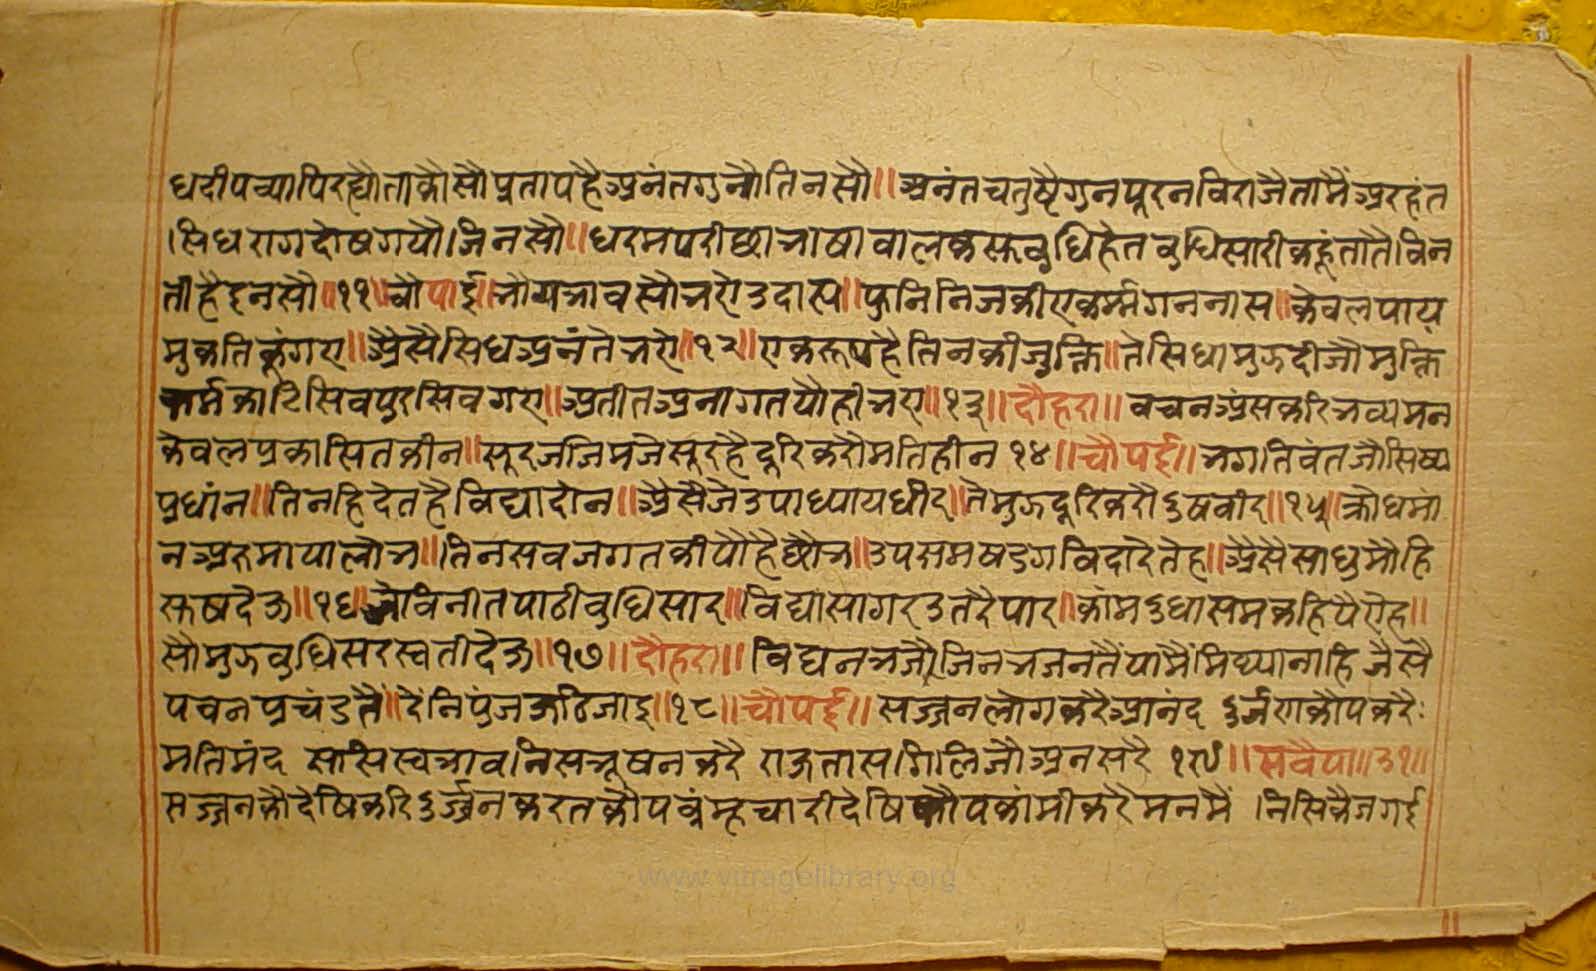 धदीपच्यापिरह्यौताकौसौप्रतापहैअनंतगुनौतिनसौ॥अनंतचतुष्टैगुनपूरनविराजैतामैंअरहंत
सिधरागदोषगयौजिनसौ॥धरमपरीछाभाषावालकस्वबुधिहेतबुधिसारीकहूंतातैविन
तीहैइनसौ॥११॥चौपाई॥भौग्यभावसौभएेउदास्य॥फुनिनिजकीएकर्म्मगननास॥केवलपाय
मुकतिकूंगए॥अैसैसिधअनंतेभऐ॥१२॥एकरूपहैतिनकीजुक्ति॥तेसिधामुझदीजौमुक्ति
कर्मकाटिसिवपुरसिवगए॥अतीतअनागतयौहीभए॥१३॥दौहरा॥वचनअंसकरिभव्यमन
कैवलप्रकासितकीन॥सूरजजिमजेसूरहैदूरिकरौमतिहीन १४॥चौपई॥भगतिवंतजौसिष्य
प्रधांन॥तिनहिदेतहैविद्यादांन॥अैसैजेउपाध्यायधीर॥तेमुझदूरिकरौदुषवीर॥१५॥क्रोधमां
नअरूमायालोभ॥तिनसवजगतकीयौहैछोभ॥उपसमषडगविदारेतेह॥अैसैसाधुमौहि
सुषदेऊ॥१६॥जेविनीतपाठीवुधिसार॥विद्यासागरउतरैपार॥कांमदुघासमकहियैऐह॥
सौमुझवुधिसरस्वतीदेऊ॥१७॥दौहरा॥विघनभजौजिनभजनतैंयामैंमिथ्यानाहिजैसै
पवनप्रचंडतैं॥रैनिपुंजऊठिजाइ॥१८॥चौपई॥सज्जनलोगकरैआनंद दुर्जणकौपकरैः
मतिमंद ससिस्वभावनिसभूषनकरै राऊतासगिलिजौअनसरै १९॥सवैया॥३१॥
सज्जनकौदेषिकरिदुर्ज्जनकरतकौपव्रंम्हचारीदेषिकौपकांमीकरैमनमैं निसिकैजगई